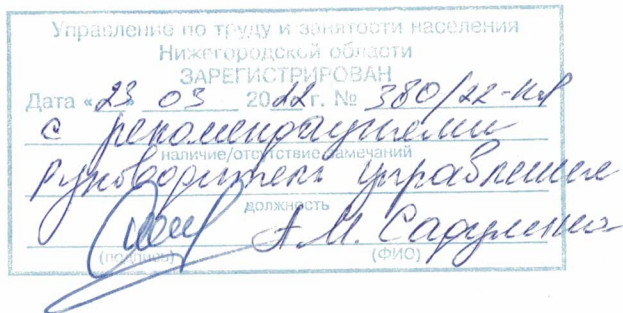 Управление по труду и занятости населения
Нижегородской области
ЗАРЕГИСТРИРОВАН
Дата «23» 03 2022 г. № 380/22-КД
с рекомендациями
наличие/отсутствие замечаний
руководитель управления
должность
А.М. Садулина
(подпись) (ФИО)